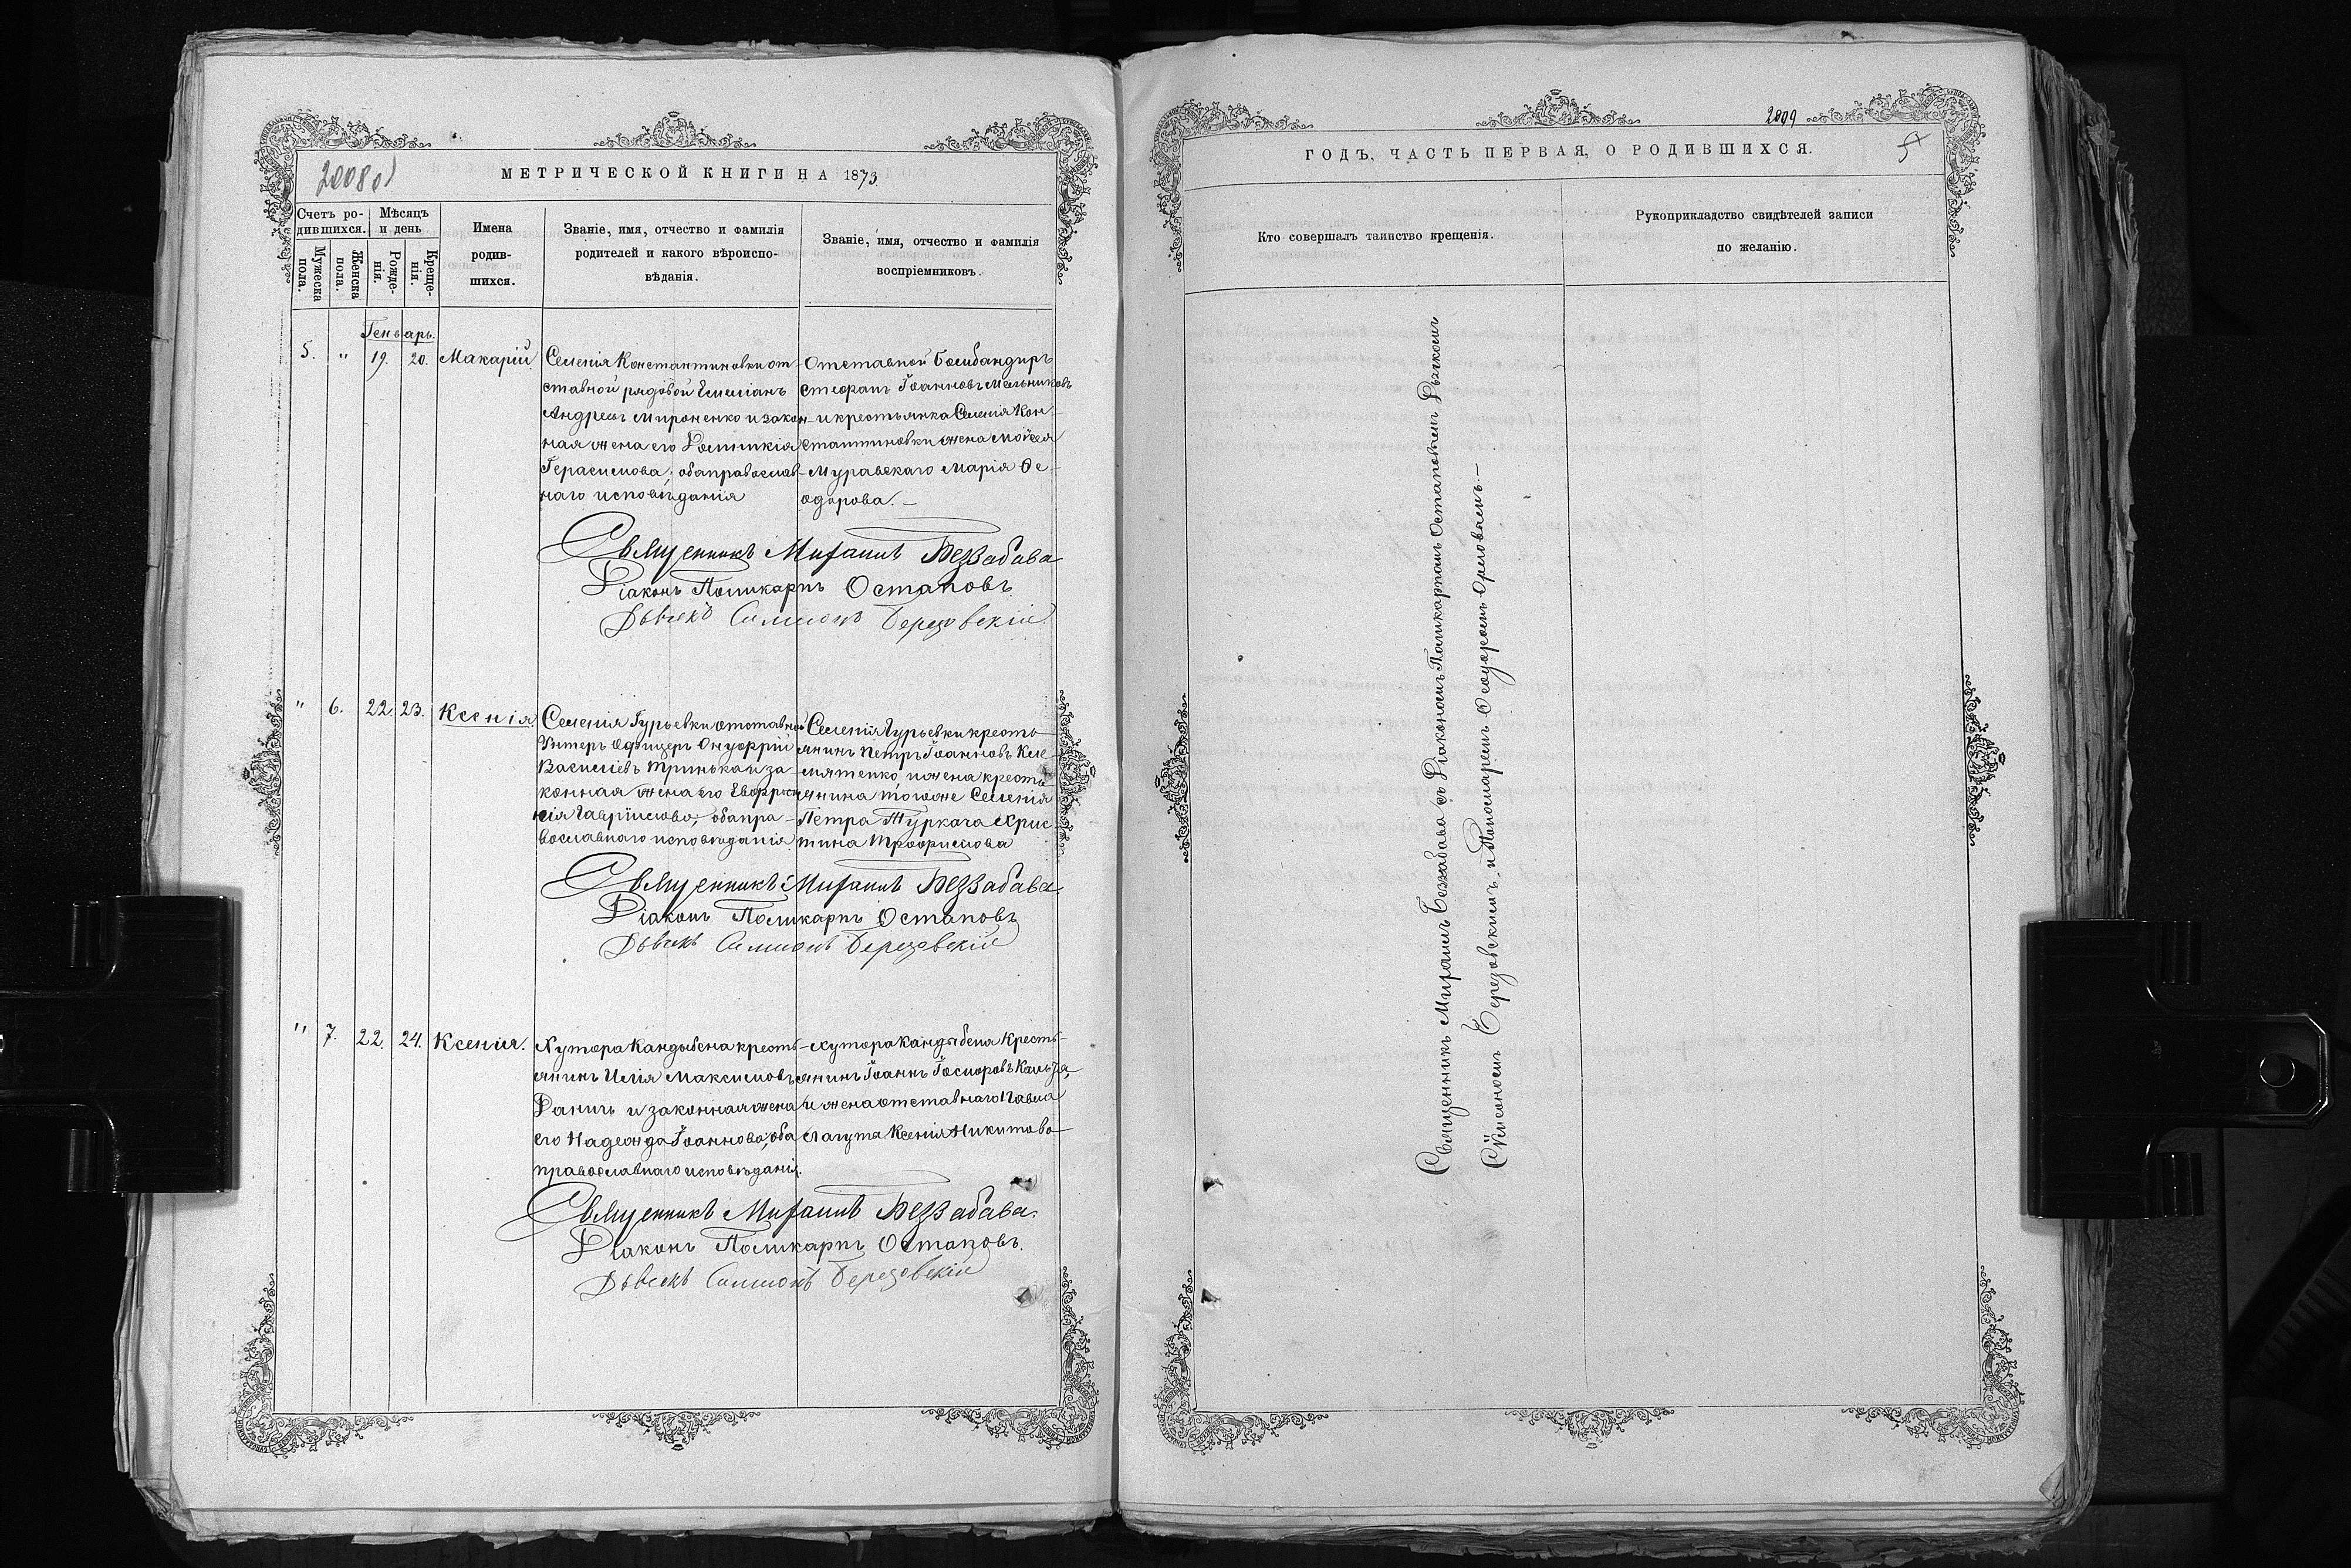 2008 об
МЕТРИЧЕСКОЙ КНИГИ НА 1873
Счетъ ро-
дившихся.
Мѣсяцъ
и день
Мужеска
пола.
Женска
пола.
Рожде-
нія.
Креще-
нія.
Имена
родив-
шихся.
Званіе, имя, отчество и фамилія
родителей и какого вѣроиспо-
вѣданія.
Званіе, имя, отчество и фамилія
воспріемниковъ.
Генварь.
5. " 19. 20. Макарій.
Селенія Константиновки от-
ставной рядовой Емеліанъ
Андреевъ Мироненко и закон-
ная жена его
Герасимова, оба православ-
наго исповѣданія
Отставной Бомбандиръ
Стефанъ Іоанновъ Мельниковъ
и крестьянка Селенія Кон-
стантиновки жена Моѵсея
Муравскаго Марія Ѳе-
одорова.—
Священникъ Михаилъ Беззабава
Діаконъ Поликарпъ Остаповъ
Дьячекъ Симеонъ Березовскій
" 6. 22. 23. Ксенія
Селенія Гурьевки отставной
Унтеръ Офицеръ Онуфрій
Василіевъ Тринька и за-
конная жена его Евфроси-
нія Гавріилова, оба пра-
вославнаго исповѣданія.
Селенія Гурьевки кресть-
янинъ Петръ Іоанновъ Кле-
мятенко, и жена кресть-
янина тогоже Селенія
Петра Туркача Хрис-
тина Трофимова
Священникъ Михаилъ Беззабава.
Діаконъ Поликарпъ Остаповъ
Дьячекъ Симеонъ Березовскій
" 7. 22. 24. Ксенія.
Хутора Кандыбена кресть-
янинъ Илія Максимовъ
Даничъ и законная жена
его Надежда Іоаннова, оба
православнаго исповѣданія.
Хутора Кандыбена Кресть-
янинъ Іоаннъ
и жена отставнаго Павла
Лагута Ксенія Никитова
Священникъ Михаилъ Беззабава.
Діаконъ Поликарпъ Остаповъ.
Дьячекъ Симеонъ Березовскій
2009
ГОДЪ, ЧАСТЬ ПЕРВАЯ, О РОДИВШИХСЯ.
Кто совершалъ таинство крещенія.
Рукоприкладство свидѣтелей записи
по желанію.
Священникъ Михаилъ Беззабава съ Діакономъ Поликарпомъ Остаповымъ
Симеономъ Березовскимъ и Пономаремъ Ѳеодоромъ Орловымъ.—